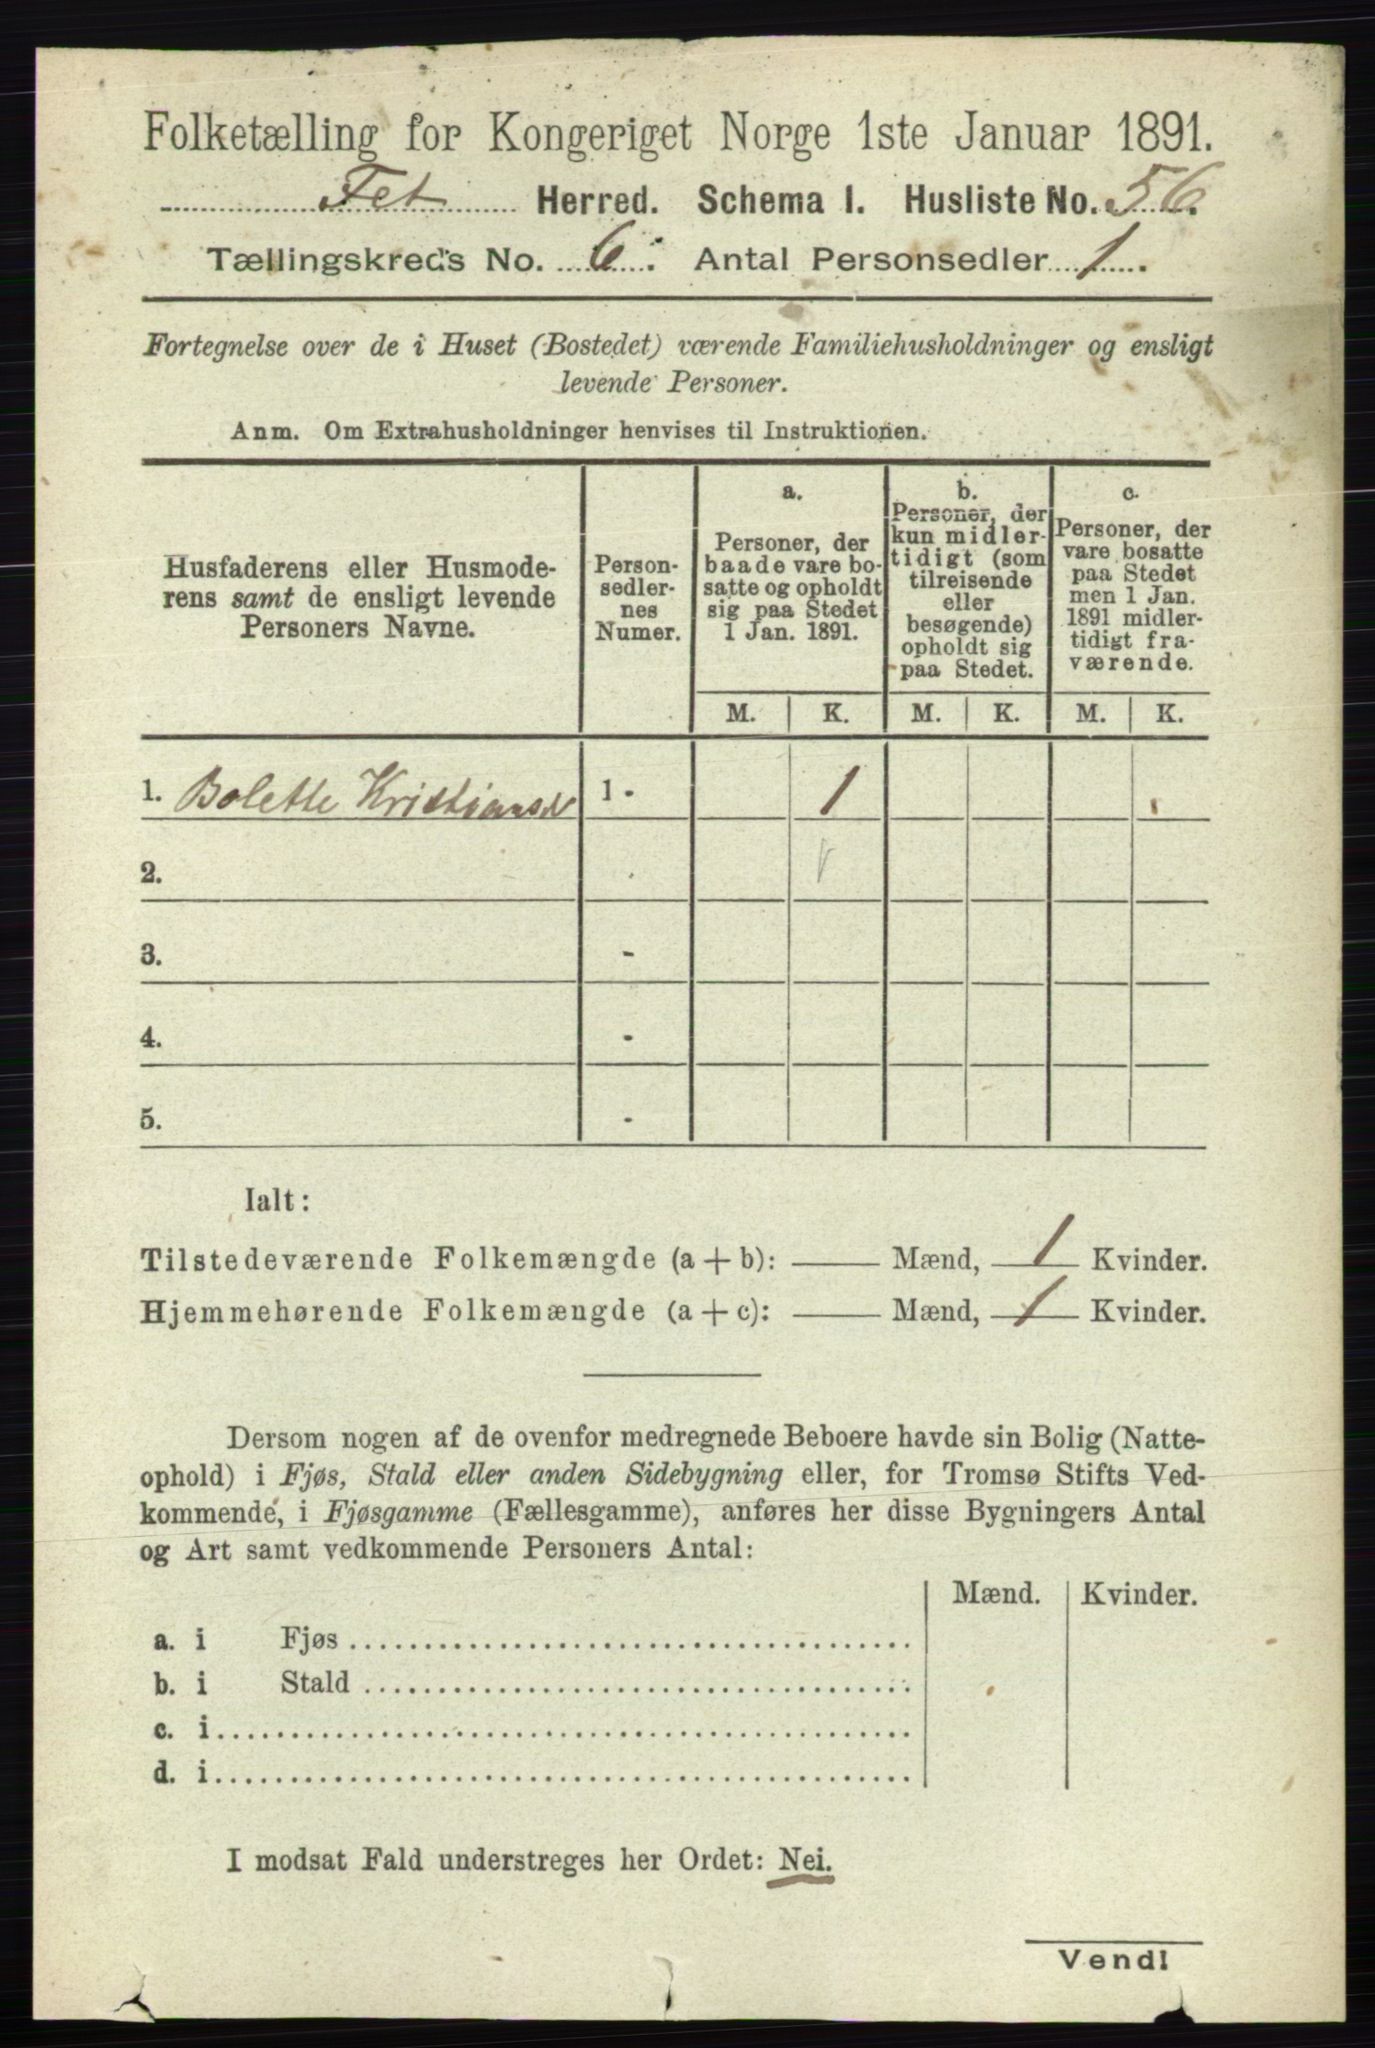 Folketælling for Kongeriget Norge 1ste Januar 1891.
Fet Herred. Schema I. Husliste No. 56.
Tællingskreds No. 6. Antal Personsedler 1.
Fortegnelse over de i Huset (Bostedet) værende Familiehusholdninger og ensligt
levende Personer.
Anm. Om Extrahusholdninger henvises til Instruktionen.
Husfaderens eller Husmode-
rens samt de ensligt levende
Personers Navne.
Person-
sedler-
nes
Numer.
a.
Personer, der
baade vare bo-
satte og opholdt
sig paa Stedet
1 Jan. 1891.
b.
Personer, der
kun midler-
tidigt (som
tilreisende
eller
besøgende)
opholdt sig
paa Stedet.
c.
Personer, der
vare bosatte
paa Stedet
men 1 Jan.
1891 midler-
tidigt fra-
værende.
M. K. M. K. M. K.
1. Bolette Kristiansd 1 - 1
2.
3. -
4. -
5. -
Ialt:
Tilstedeværende Folkemængde (a + b): Mænd, 1 Kvinder.
Hjemmehørende Folkemængde (a + c): Mænd, 1 Kvinder.
Dersom nogen af de ovenfor medregnede Beboere havde sin Bolig (Natte-
ophold) i Fjøs, Stald eller anden Sidebygning eller, for Tromsø Stifts Ved-
kommende, i Fjøsgamme (Fællesgamme), anføres her disse Bygningers Antal
og Art samt vedkommende Personers Antal:
Mænd. Kvinder.
a. i Fjøs
b. i Stald
c. i
d. i
I modsat Fald understreges her Ordet: Nei.
Vend!